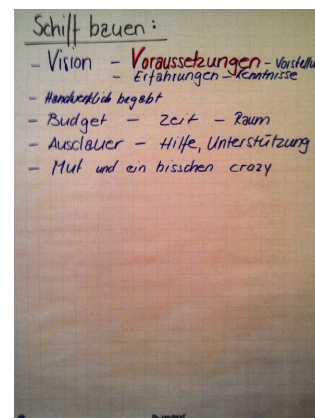 Schiff bauen:
- Vision - Voraussetzungen - Vorstellu
- Erfahrungen - Kenntnisse
- Handwerklich begabt
- Budget - Zeit - Raum
- Ausdauer - Hilfe, Unterstützung
- Mut und ein bisschen crazy